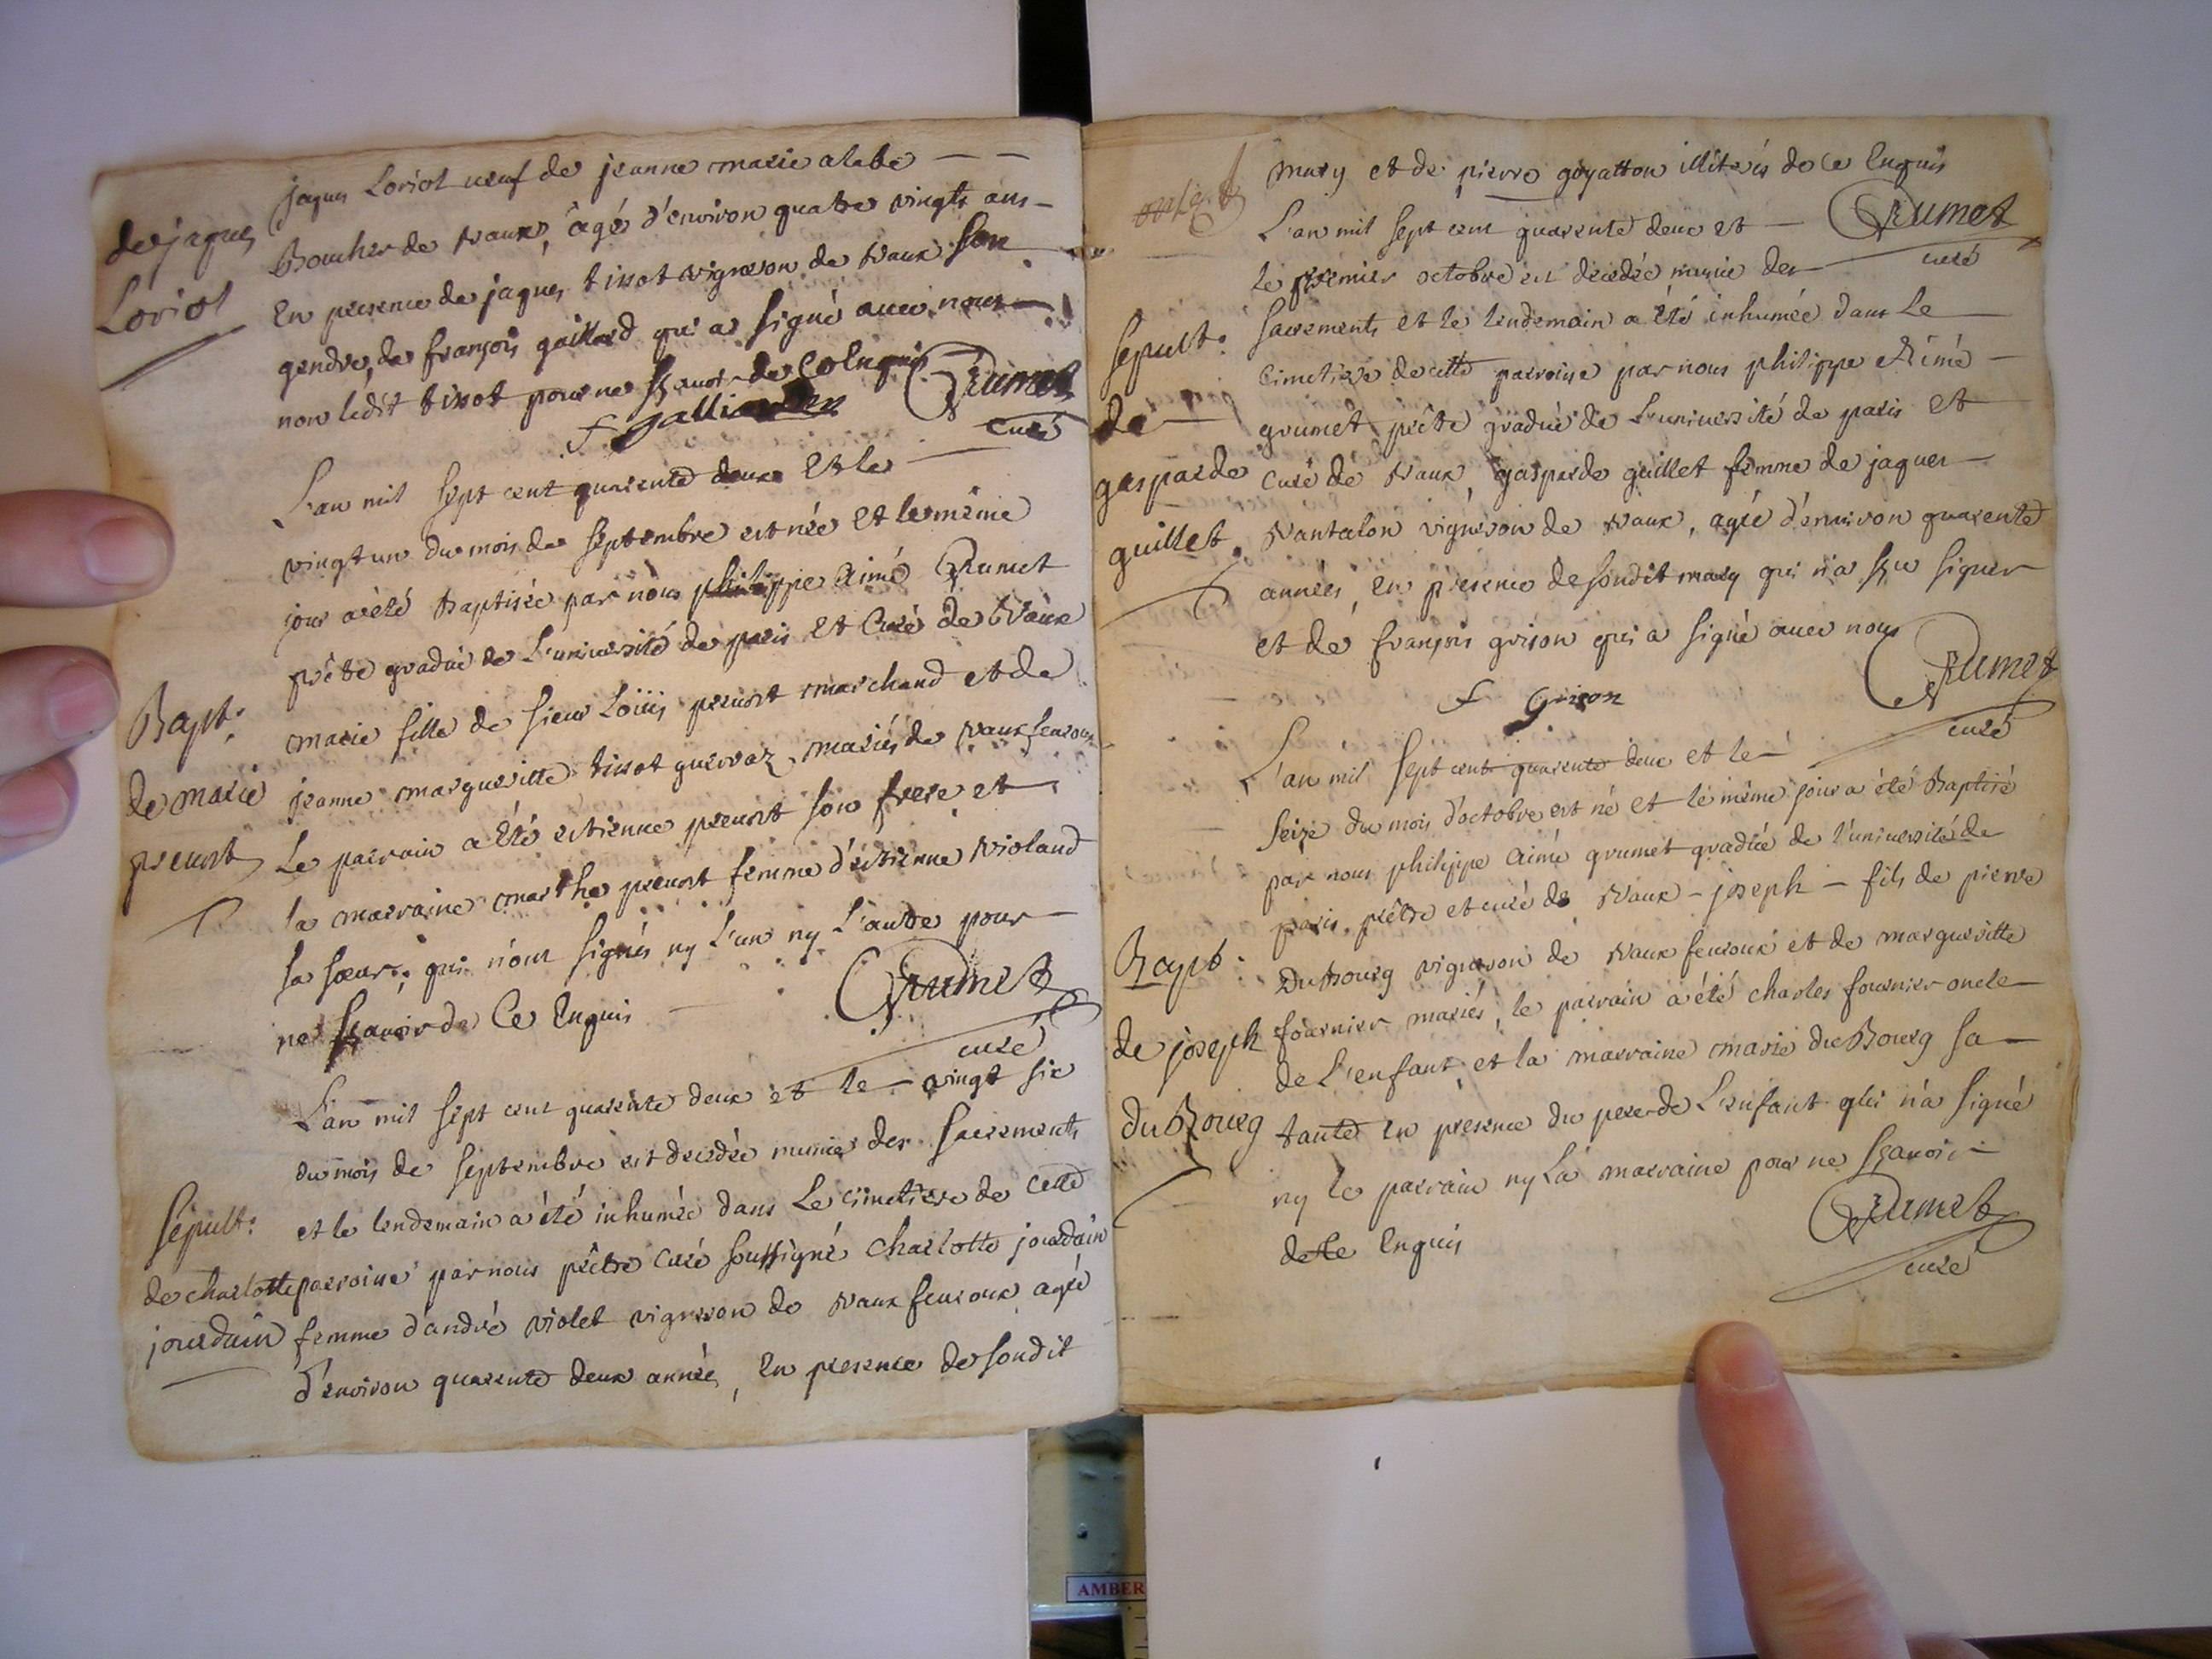 jaques Loriol veuf de jeanne marie alabe
de jaques
Boucher de vaux, âgé d'environ quatre vingts ans
Loriol
En presence de jaques tissot vigneron de vaux son
gendre, de françois gaillard qui a signé avec nous
non ledit tissot pour ne sçavoir de ce enquis Grumet
f galli curé
L'an mil sept cent quarente deux Et le
vingt un du mois de septembre est née Et le même
jour a été Baptisée par nous philippe Aimé Grumet
prêtre gradué de L'université de paris et Curé de Vaux
Bapt:
marie fille de sieur Loüis prevost marchand et de
de marie
jeanne margueritte tissot guerraz, mariés de vaux fevroux
prevost
Le parrain a été estienne prevost son frere et
la marraine marthe prevost femme d'estienne violand
sa sœur, qui n'ont signés ny L'un ny L'autre pour
ne sçavoir de Ce Enquis Grumet
curé
L'an mil sept cent quarente deux et le vingt six
du mois de septembre est decedée munie des sacrements
Sepult:
et le lendemain a été inhumée dans Le cimetiere de cette
de charlotte
parroisse par nous prêtre curé soussigné charlotte jourdain
jourdain
femme d'andré violet vigneron de vaux fevroux agée
d'environ quarente deux années, En presence de sondit
mary et de pierre goyatton illiterés de ce Enquis
L'an mil sept cent quarente deux et Grumet
le premier octobre est decedée munie des curé
Sepult:
sacrements et le lendemain a été inhumée dans Le
cimetiere de cette parroisse par nous philippe Aimé
de
grumet prêtre gradué de L'université de paris et
gasparde
curé de vaux, gasparde guillet femme de jaques
guillet
vantalon vigneron de vaux, agée d'environ quarente
années, En presence de sondit mary qui n'a sçu signer
et de françois grison qui a signé avec nous
Grumet
f Grison
curé
L'an mil sept cent quarente deux et le
seize du mois d'octobre est né et le même jour a été Baptisé
par nous philippe aimé grumet gradué de l'université de
paris, prêtre et curé de vaux - joseph - fils de pierre
Bapt:
Du Bourg vigneron de vaux fevroux et de margueritte
de joseph
fournier mariés, le parrain a été charles fournier oncle
de L'enfant, et la marraine marie du Bourg sa
du Bourg
tante en presence du pere de L'enfant qui n'a signé
ny le parrain ny La marraine pour ne sçavoir
de ce Enquis
Grumet
curé
AMBER